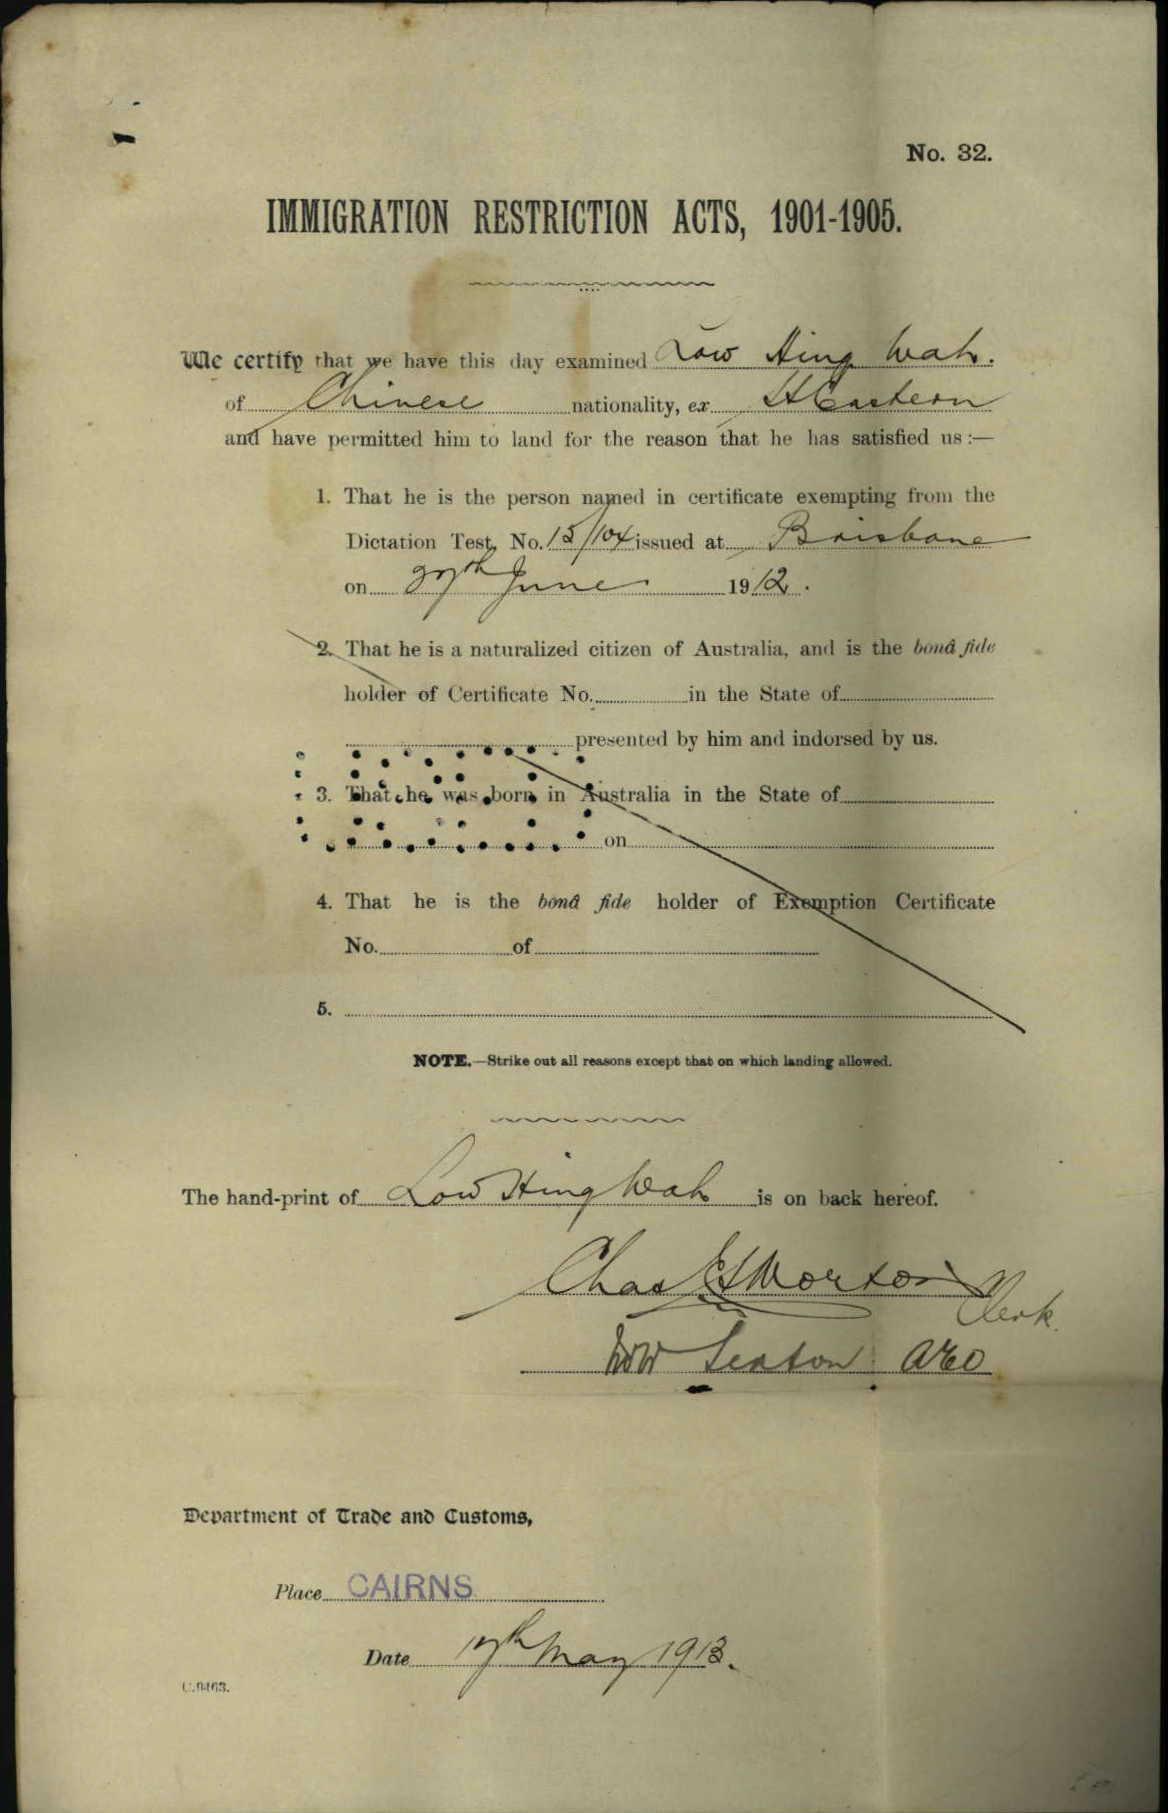 No. 32.
IMMIGRATION RESTRICTION ACTS, 1901-1905.
We certify that we have this day examined Low Hing Wah.
of Chinese nationality, ex St Eastern
and have permitted him to land for the reason that he has satisfied us :—
1. That he is the person named in certificate exempting from the
Dictation Test, No. 15/104 issued at Brisbane
on 27th June 1912.
2. That he is a naturalized citizen of Australia, and is the bonâ fide
holder of Certificate No. in the State of
presented by him and indorsed by us.
3. That he was born in Australia in the State of
on
4. That he is the bonâ fide holder of Exemption Certificate
No. of
5.
NOTE.—Strike out all reasons except that on which landing allowed.
The hand-print of Low Hing Wah is on back hereof.
Chas Norton
Clerk
Sexton
Department of Trade and Customs,
Place CAIRNS
Date 17th May 1913.
C.9463.